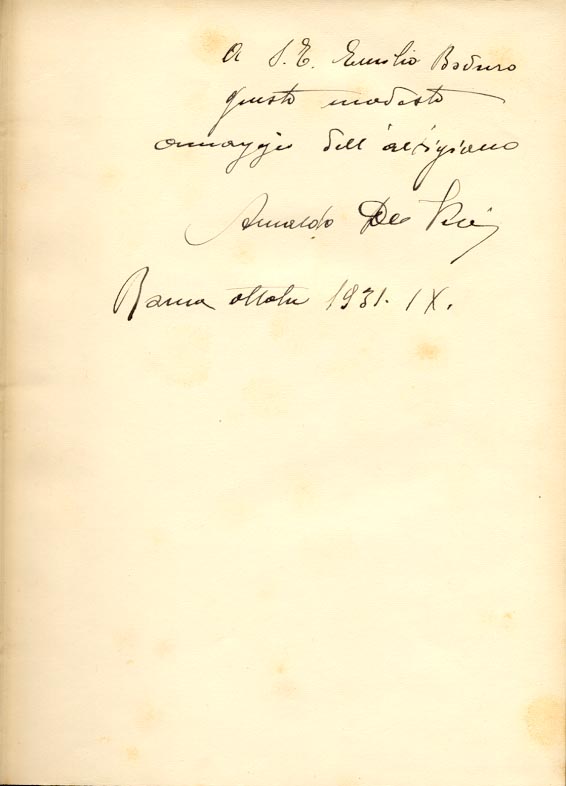 A S. E. Emilio Boduro
questo modesto
omaggio dell'artigiano
Arnaldo De
Roma ottobre 1931. IX.